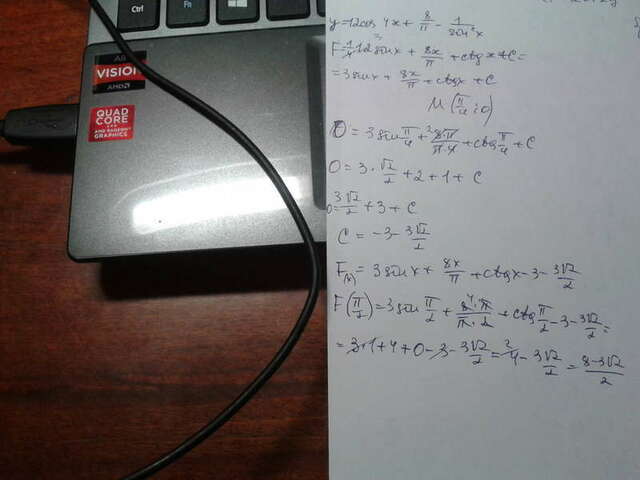 Ctrl
Fn
Alt
A8
VISION
AMD
QUAD
CORE
AMD RADEON
GRAPHICS
y=12cos 4x + 8/π - 1/sin²x
F = 1/4·12 sin x + 8x/π + ctg x + C =
= 3 sin x + 8x/π + ctg x + C
M (π/4; 0)
0 = 3 sin π/4 + 8·π/π·4 + ctg π/4 + C
0 = 3 · √2/2 + 2 + 1 + C
0 = 3√2/2 + 3 + C
C = -3 - 3√2/2
F(x) = 3 sin x + 8x/π + ctg x - 3 - 3√2/2
F(π/2) = 3 sin π/2 + 8·π/π·2 + ctg π/2 - 3 - 3√2/2 =
= 3·1 + 4 + 0 - 3 - 3√2/2 = 4 - 3√2/2 = 8-3√2/2